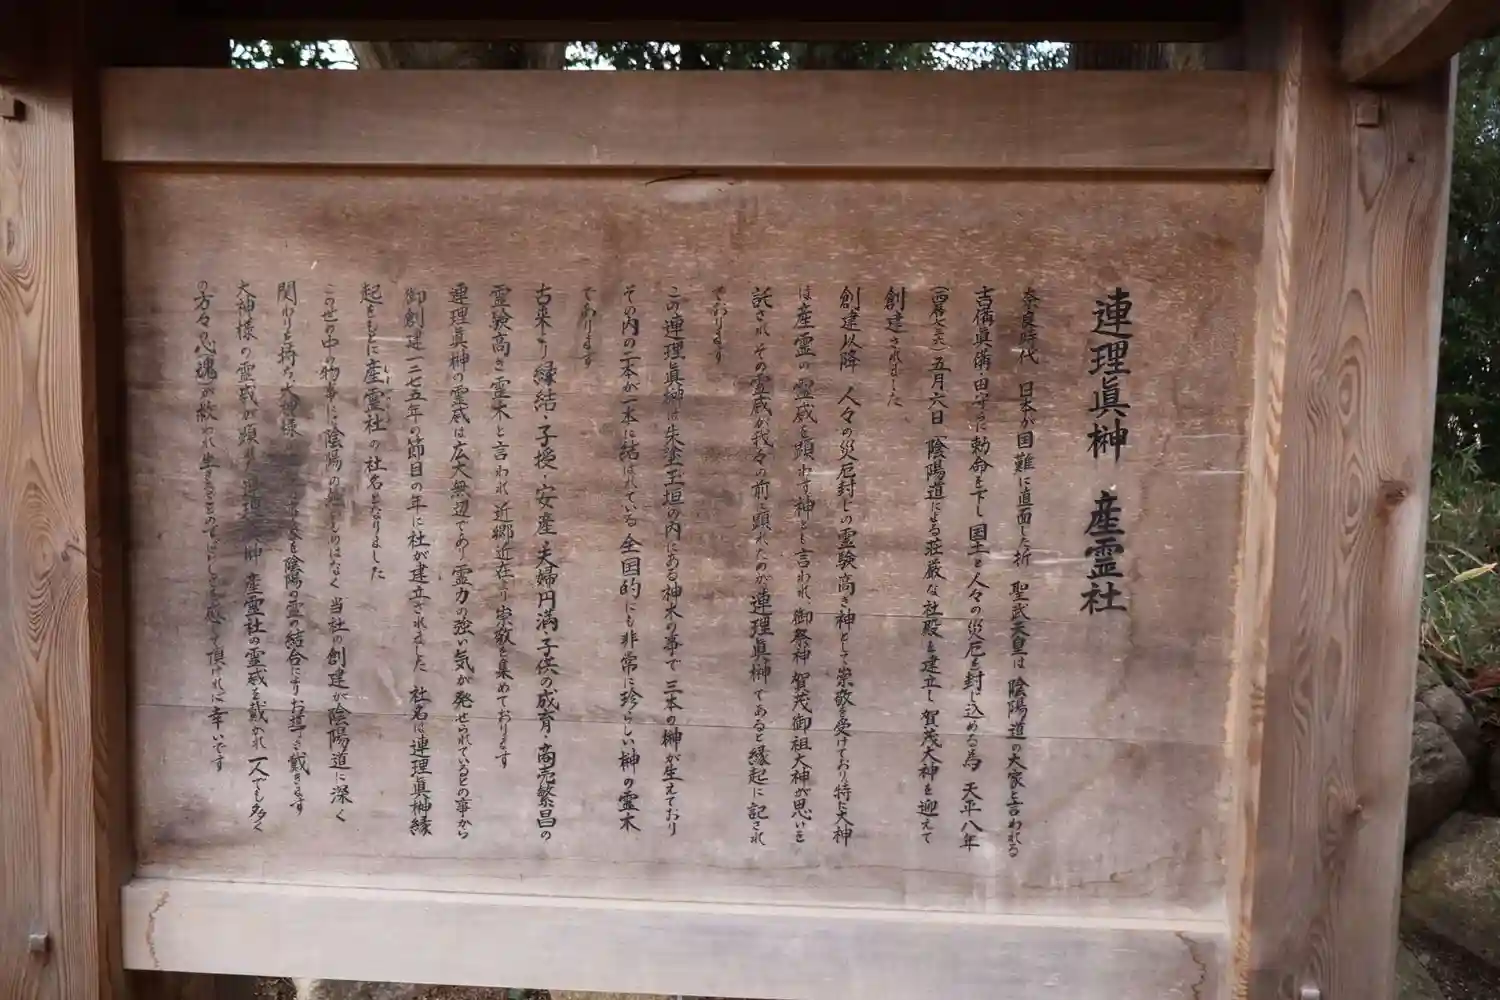 連理眞榊 産霊社
奈良時代 日本が国難に直面した折 聖武天皇は 陰陽道の大家と言われる
吉備眞備・由学らに勅命を下し 国土と人々の災厄を封じ込める為 天平八年
(西暦七三六)五月六日 陰陽道による荘厳な社殿を建立し 賀茂大神を迎えて
創建されました
創建以降 人々の災厄封じの霊験高き神として崇敬を受けており 特に大神
は産霊の霊威を顕わす神とも言われ 御祭神 賀茂御祖大神が思いを
託され その霊威が我々の前に顕れたのが連理眞榊であると縁起に記され
ております
この連理眞榊は朱塗玉垣の内にある神木の事で 三本の榊が生えており
その内の二本が一本に結ばれている 全国的にも非常に珍らしい榊の霊木
であります
古来より縁結・子授・安産・夫婦円満・子供の成育・商売繁昌の
霊験高き霊木と言われ 近郷近在より崇敬を集めております
連理眞榊の霊威は広大無辺であり 霊力の強い気が発せられているとの事から
御創建一二七五年の節目の年に社が建立されました 社名は連理眞榊縁
起をもとに産霊社の社名となりました
この世の中の物事に陰陽の なく 当社の創建が陰陽道に深く
関わりを持ち 大神様 陰陽の霊の結合によりお導き戴きます
大神様の霊威が顕 連理眞榊 産霊社の霊威を戴かれ 一人でも多く
の方々の心魂が救われ と感じて頂ければ幸いです